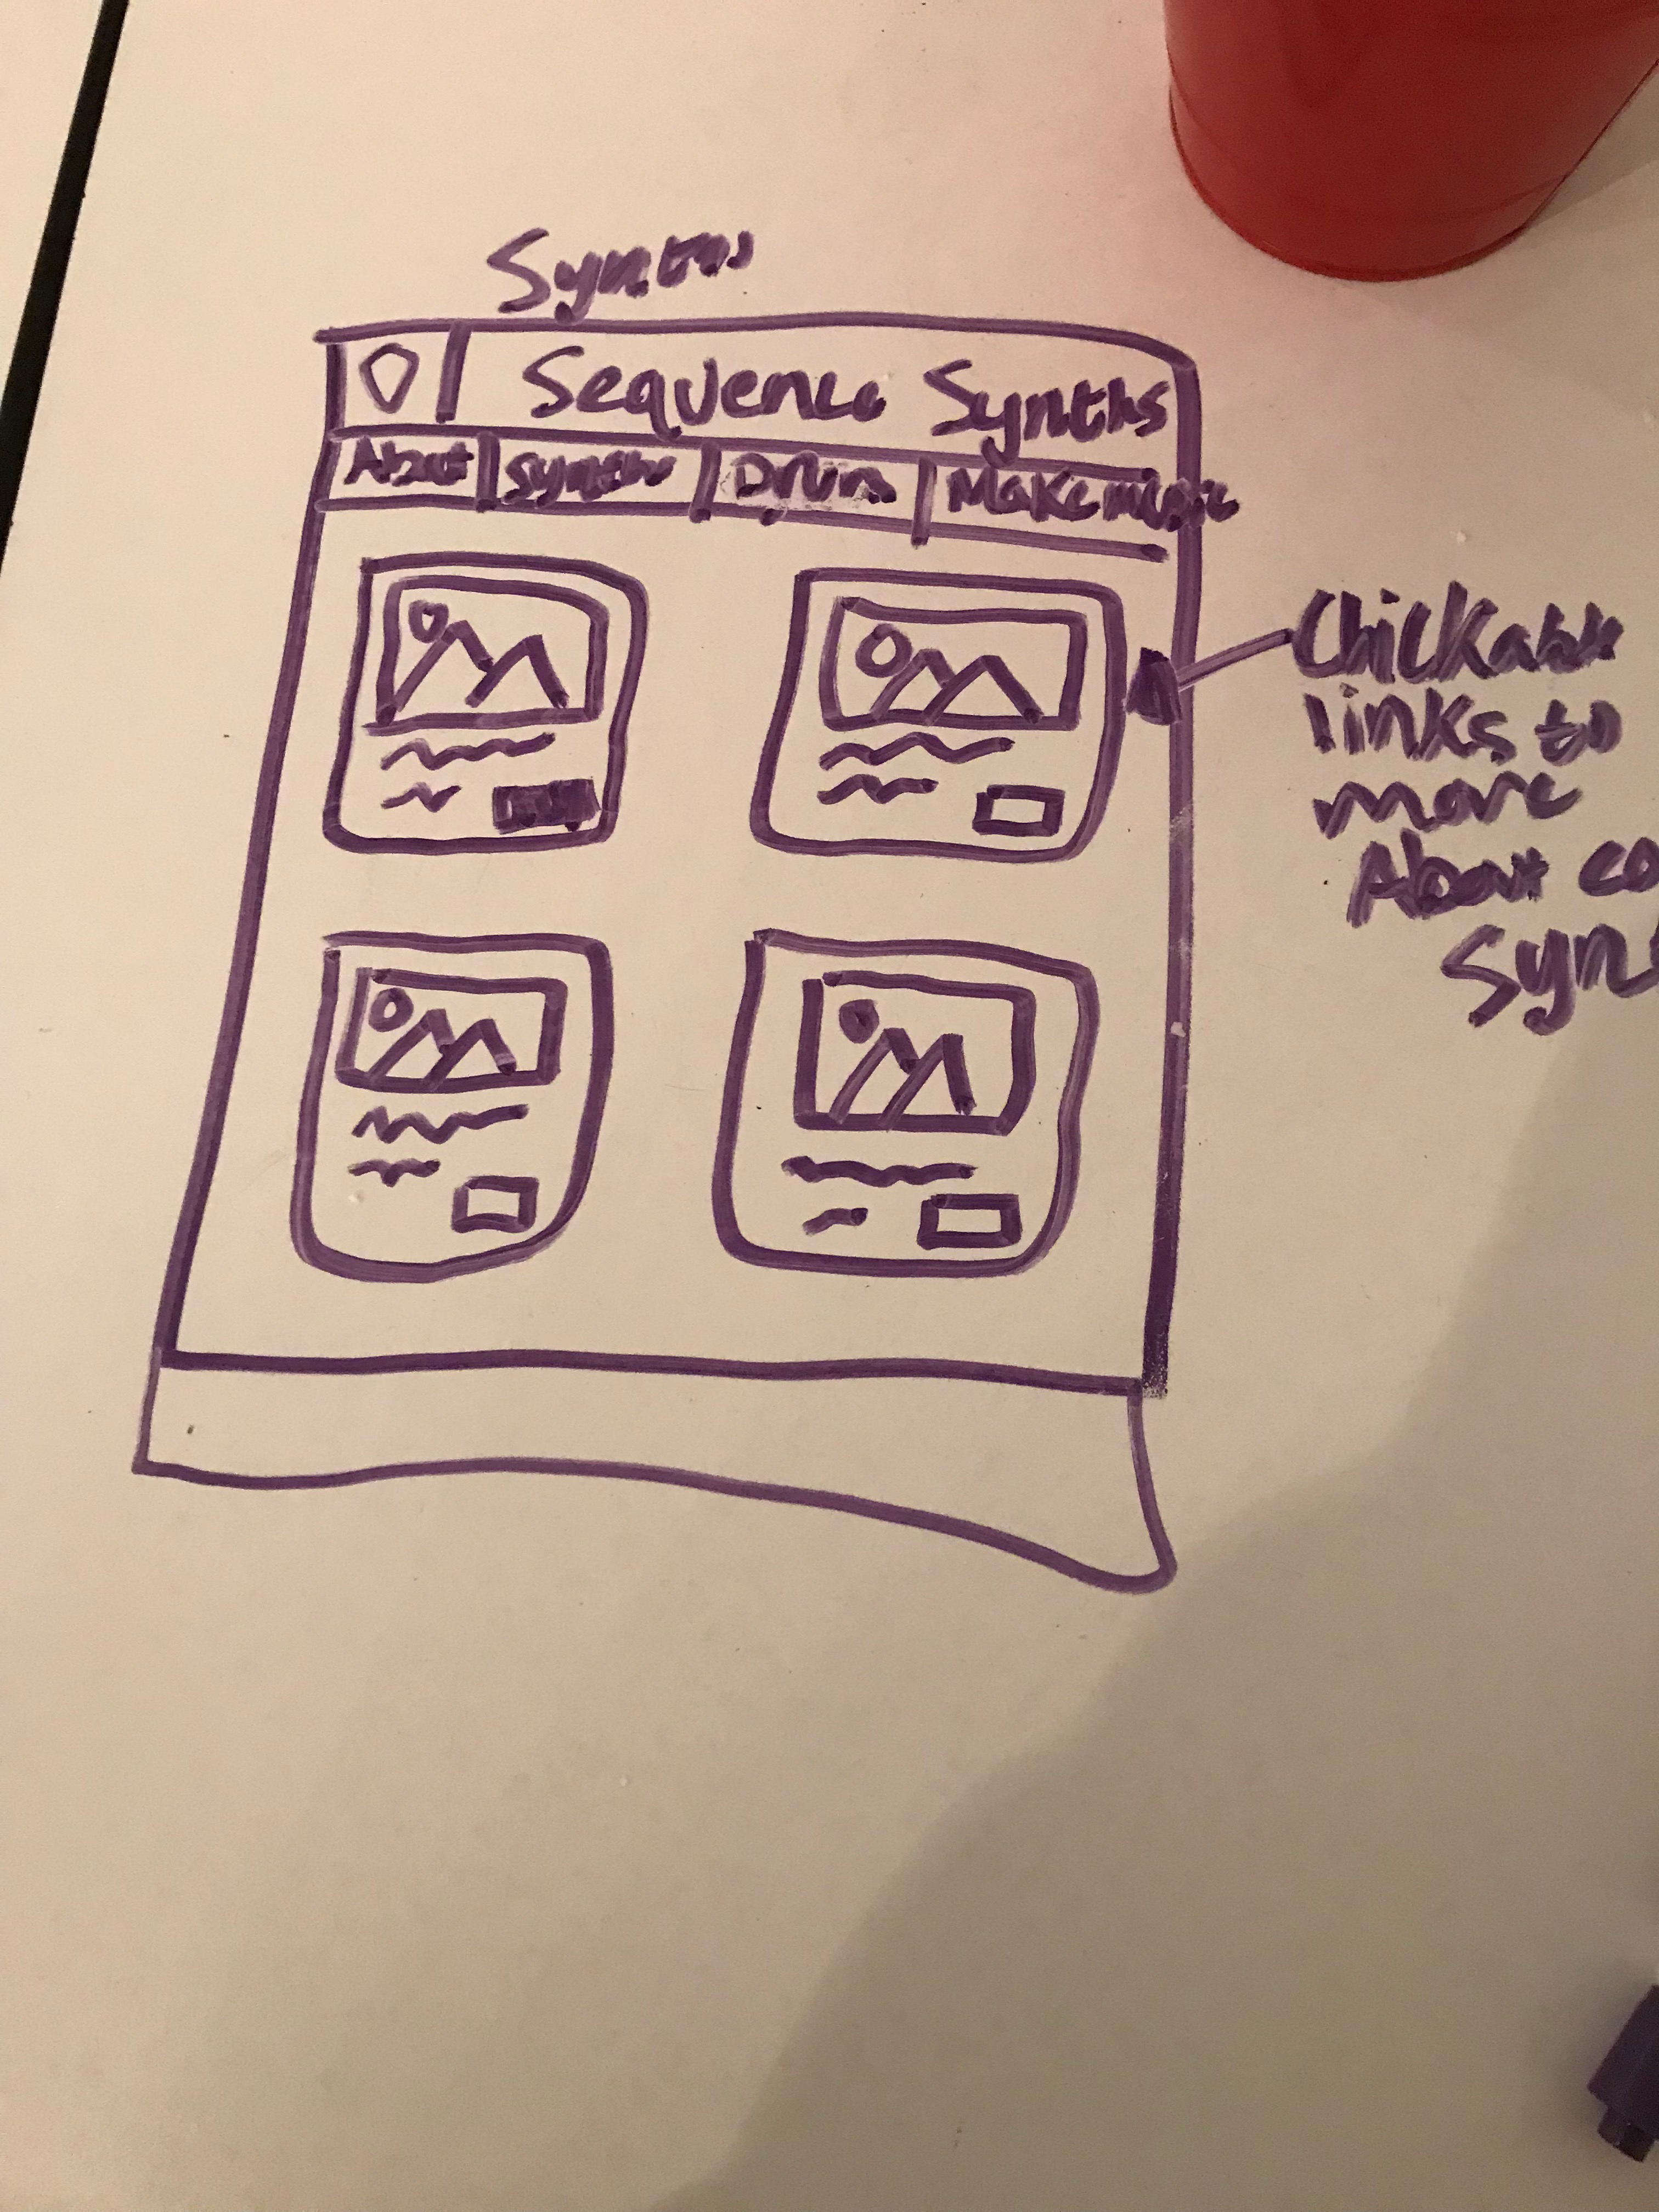 Synths
Sequence Synths
About
Synths
Drums
Make music
Clickable
links to
more
About co
Syn